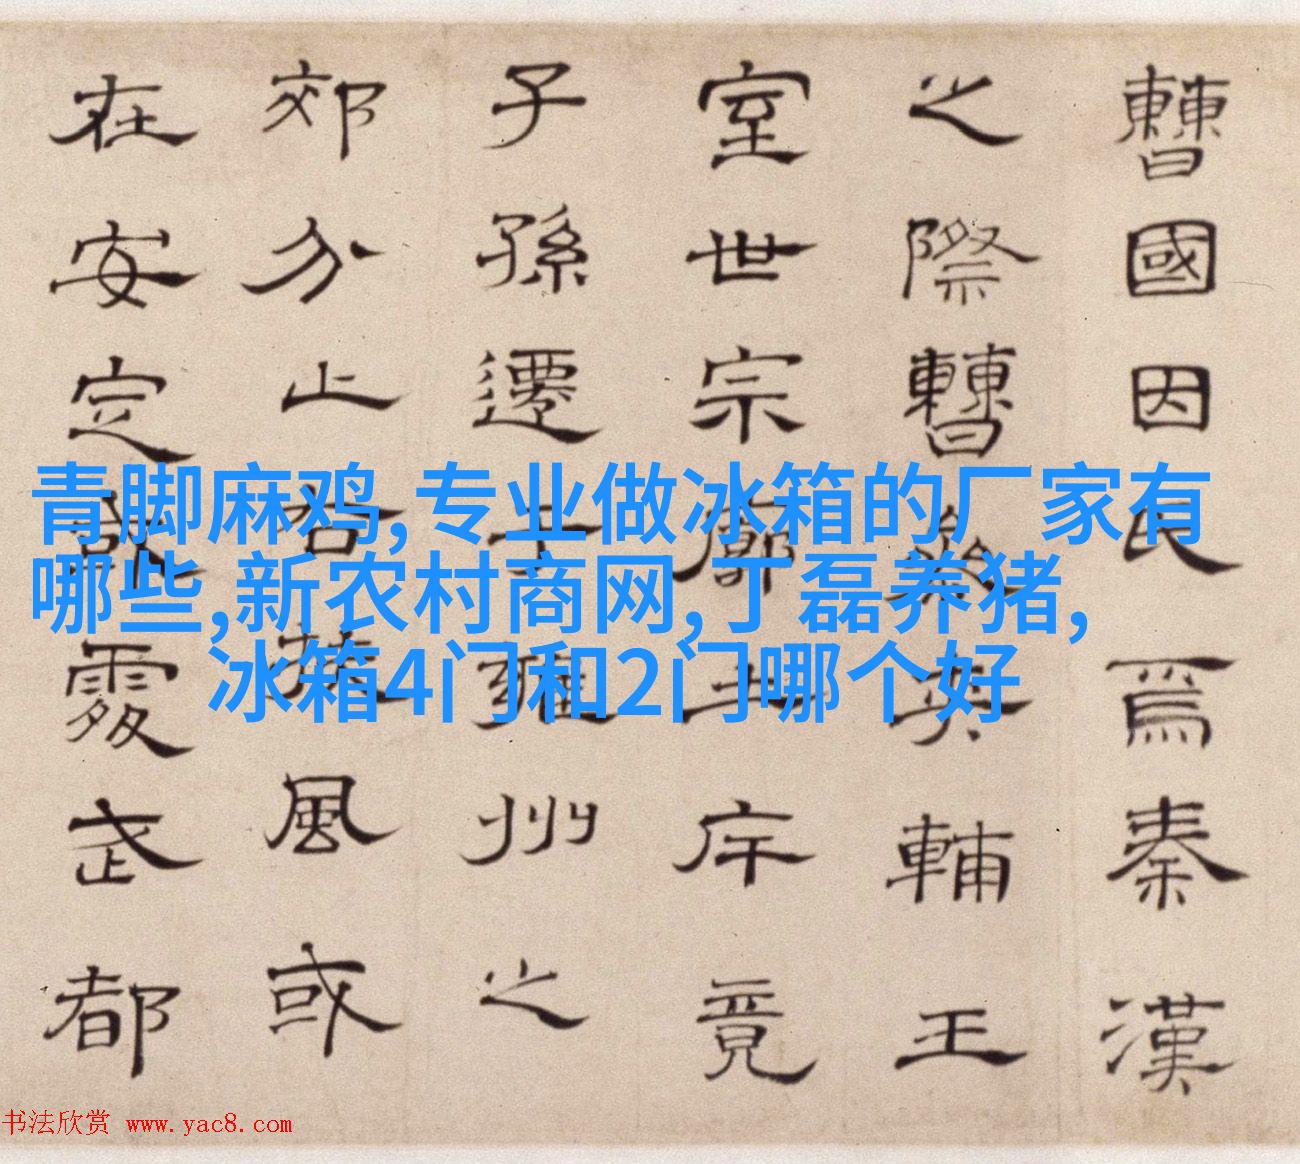 曹國因氏焉秦漢
之際曹參夾輔王
室世宗廓土斥竟
子孫遷于雍州之
郊分止右扶風或
在安定或處武都
青脚麻鸡,专业做冰箱的厂家有
哪些,新农村商网,丁磊养猪,
冰箱4门和2门哪个好
书法欣赏 www.yac8.com